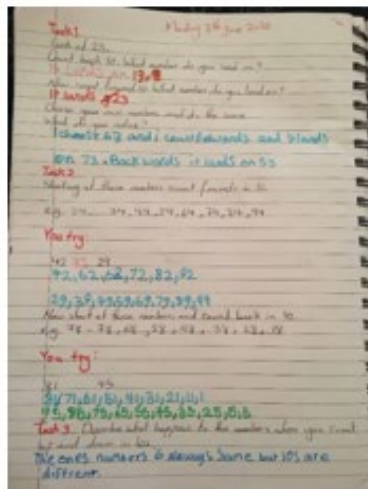 Monday 29th June 2020
Task 1
Look at 23.
Count back 10. What number do you land on?
It lands on 13.
Now count forward 10. What number do you land on?
It lands 23
Choose your own numbers and do the same
What do you notice?
I choose 63 and i count forwards and it lands
on 73. Back words it lands on 53
Task 2
Starting at these numbers count forwards in 10s
e.g. 24 34, 44, 54, 64, 74, 84, 94
You try:
42 29
42, 62, 72, 82, 92
29, 39, 49, 59, 69, 79, 89, 99
Now start at these numbers and count back in 10s
You try:
81 95
81, 71, 61, 51, 41, 31, 21, 11, 1
95, 85, 75, 65, 55, 45, 35, 25, 15, 5
Task 3 Describe what happens to the numbers when you count
up and down in 10s.
The ones numbers is always same but 10s are
diffrent.